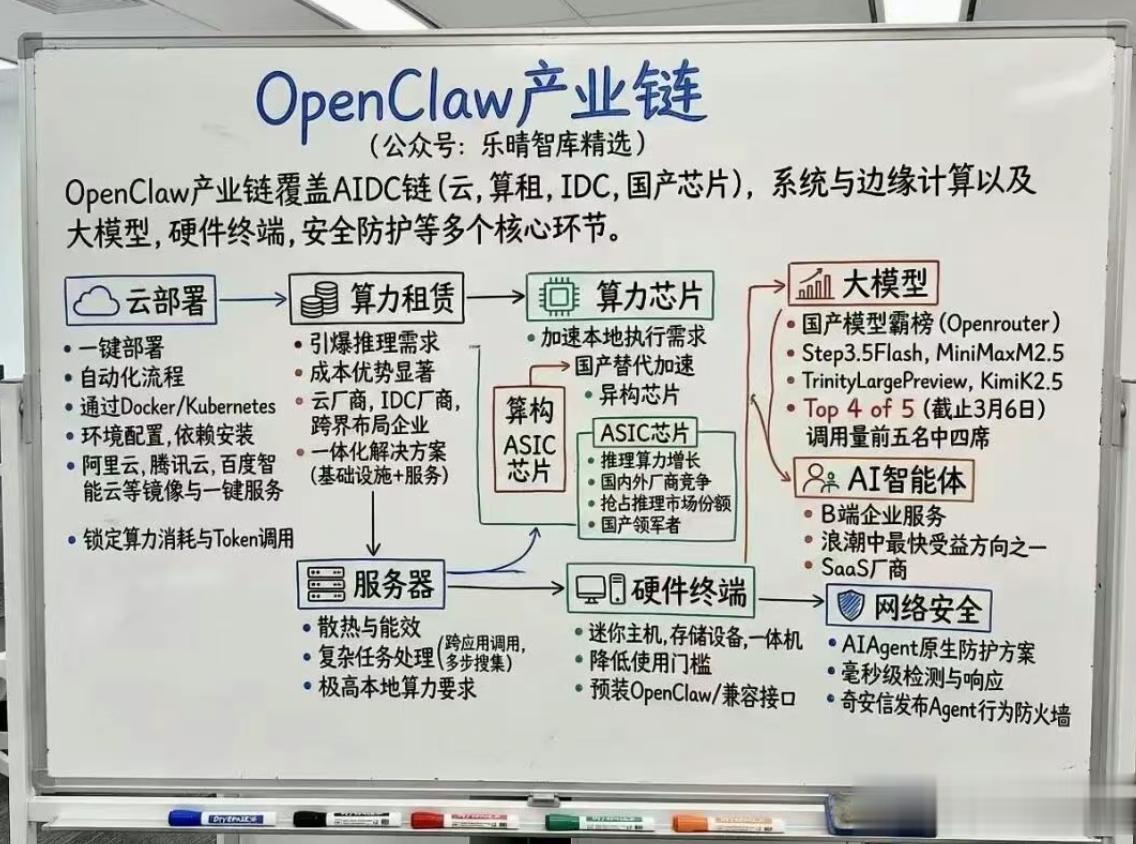 OpenClaw产业链
（公众号：乐晴智库精选）
OpenClaw产业链覆盖AIDC链(云,算租,IDC,国产芯片)，系统与边缘计算以及
大模型,硬件终端,安全防护等多个核心环节。
云部署
• 一键部署
• 自动化流程
• 通过Docker/Kubernetes
• 环境配置,依赖安装
• 阿里云,腾讯云,百度智
能云等镜像与一键服务
• 锁定算力消耗与Token调用
算力租赁
• 引爆推理需求
• 成本优势显著
• 云厂商,IDC厂商,
跨界布局企业
• 一体化解决方案
(基础设施+服务)
算力芯片
• 加速本地执行需求
国产替代加速
• 异构芯片
算构
ASIC
芯片
ASIC芯片
• 推理算力增长
• 国内外厂商竞争
• 抢占推理市场份额
• 国产领军者
大模型
• 国产模型霸榜（Openrouter）
• Step3.5Flash, MiniMaxM2.5
• TrinityLargePreview, KimiK2.5
• Top 4 of 5 (截止3月6日)
调用量前五名中四席
AI智能体
• B端企业服务
• 浪潮中最快受益方向之一
• SaaS厂商
服务器
• 散热与能效
• 复杂任务处理(跨应用调用,
多步搜集)
• 极高本地算力要求
硬件终端
• 迷你主机,存储设备,一体机
• 降低使用门槛
• 预装OpenClaw/兼容接口
网络安全
• AIAgent原生防护方案
• 毫秒级检测与响应
• 奇安信发布Agent行为防火墙